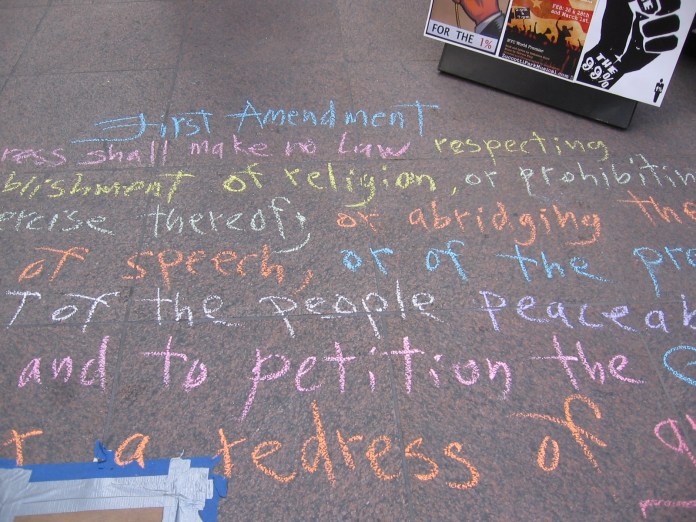 FOR THE 1%
FEB. 18 & 25th
and March 1st
NYC World Premier
THE
99%
First Amendment
ress shall make no law respecting
blishment of religion, or prohibitin
ercise thereof; or abridging the
of speech, or of the pre
t of the people peaceab
and to petition the G
r a redress of